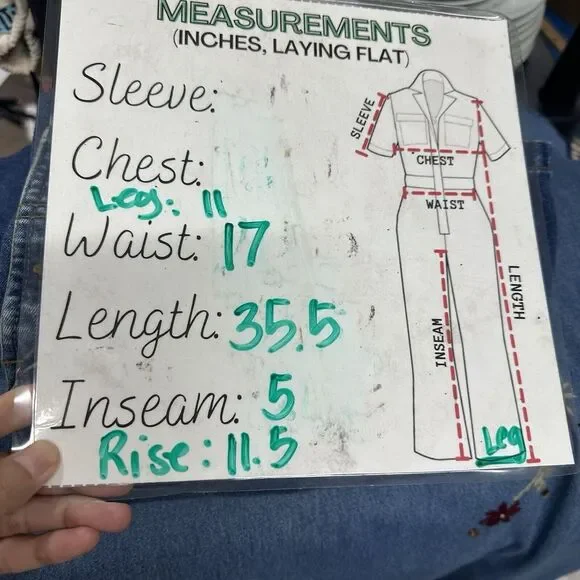 MEASUREMENTS
(INCHES, LAYING FLAT)
Sleeve:
Chest:
Leg: 11
Waist: 17
Length: 35.5
Inseam: 5
Rise: 11.5
SLEEVE
CHEST
WAIST
LENGTH
INSEAM
Leg